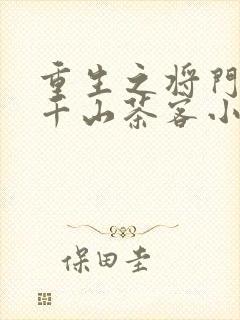 重生之将门
千山茶客小
保田圭